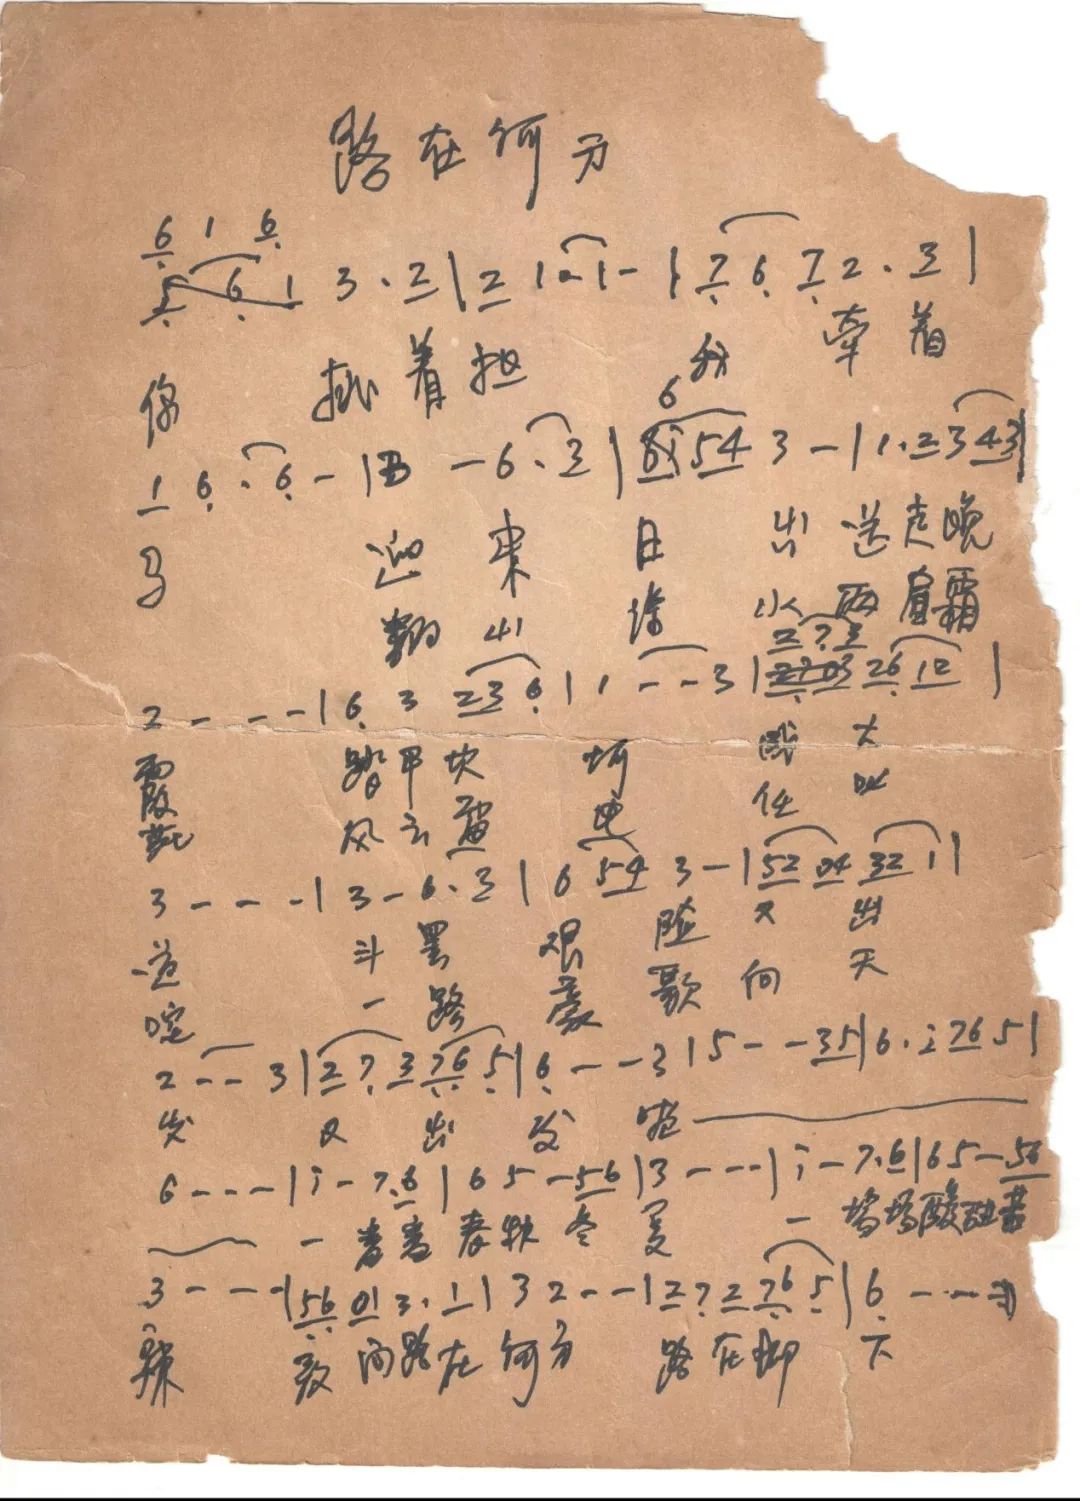 路在何方
6 1 6
5 6 1 3 . 2 | 2 1 . 1 - | 7 6 7 2 . 3 |
你 挑着担 我 牵着
6
1 6 . 6 - | 3 - 6 . 3 | 6i 54 3 - | 1 . 2 3 43 |
马 迎来日出送走晚
翻山涉水两肩霜
2 7 3
2 - - - | 6 3 23 6 | 1 - - 3 | 26 12 |
霞 踏平坎坷 成大
花 风云雷电 任叱
3 - - - | 3 - 6 . 3 | 6 54 3 - | 52 04 32 1 |
道 斗罢艰险又出
咤 一路豪歌向天
2 - - 3 | 27 3 76 5 | 6 - - - 3 | 5 - - 35 | 6 . i 76 5 |
发 又出发 啦
6 - - - | i - 7 . 6 | 6 5 - 56 | 3 - - - | i - 7 . 6 | 6 5 - 56
一番番春秋冬夏 一场场酸甜苦
3 - - - | 56 01 3 . 1 | 3 2 - - | 2 7 2 76 5 | 6 - - -
辣 敢问路在何方 路在脚下